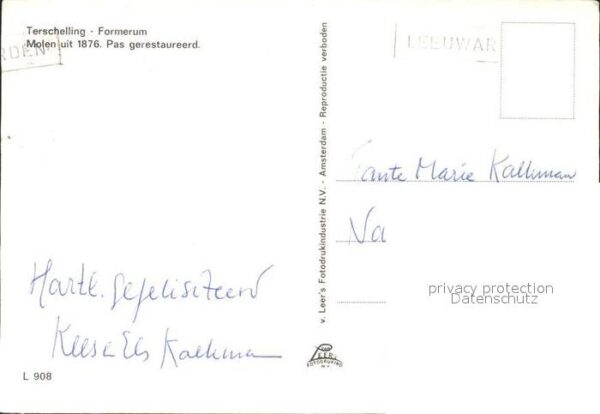 Terschelling - Formerum
Molen uit 1876. Pas gerestaureerd.
RDEN
LEEUWAR
v. Leer's Fotodrukindustrie N.V. - Amsterdam - Reproductie verboden
Tante Marie Kalkman
Na
Hartl. gefeliciteerd
Kees en Els Kalkman
privacy protection
Datenschutz
LEER'S
FOTODRUKIND
N.V.
L 908